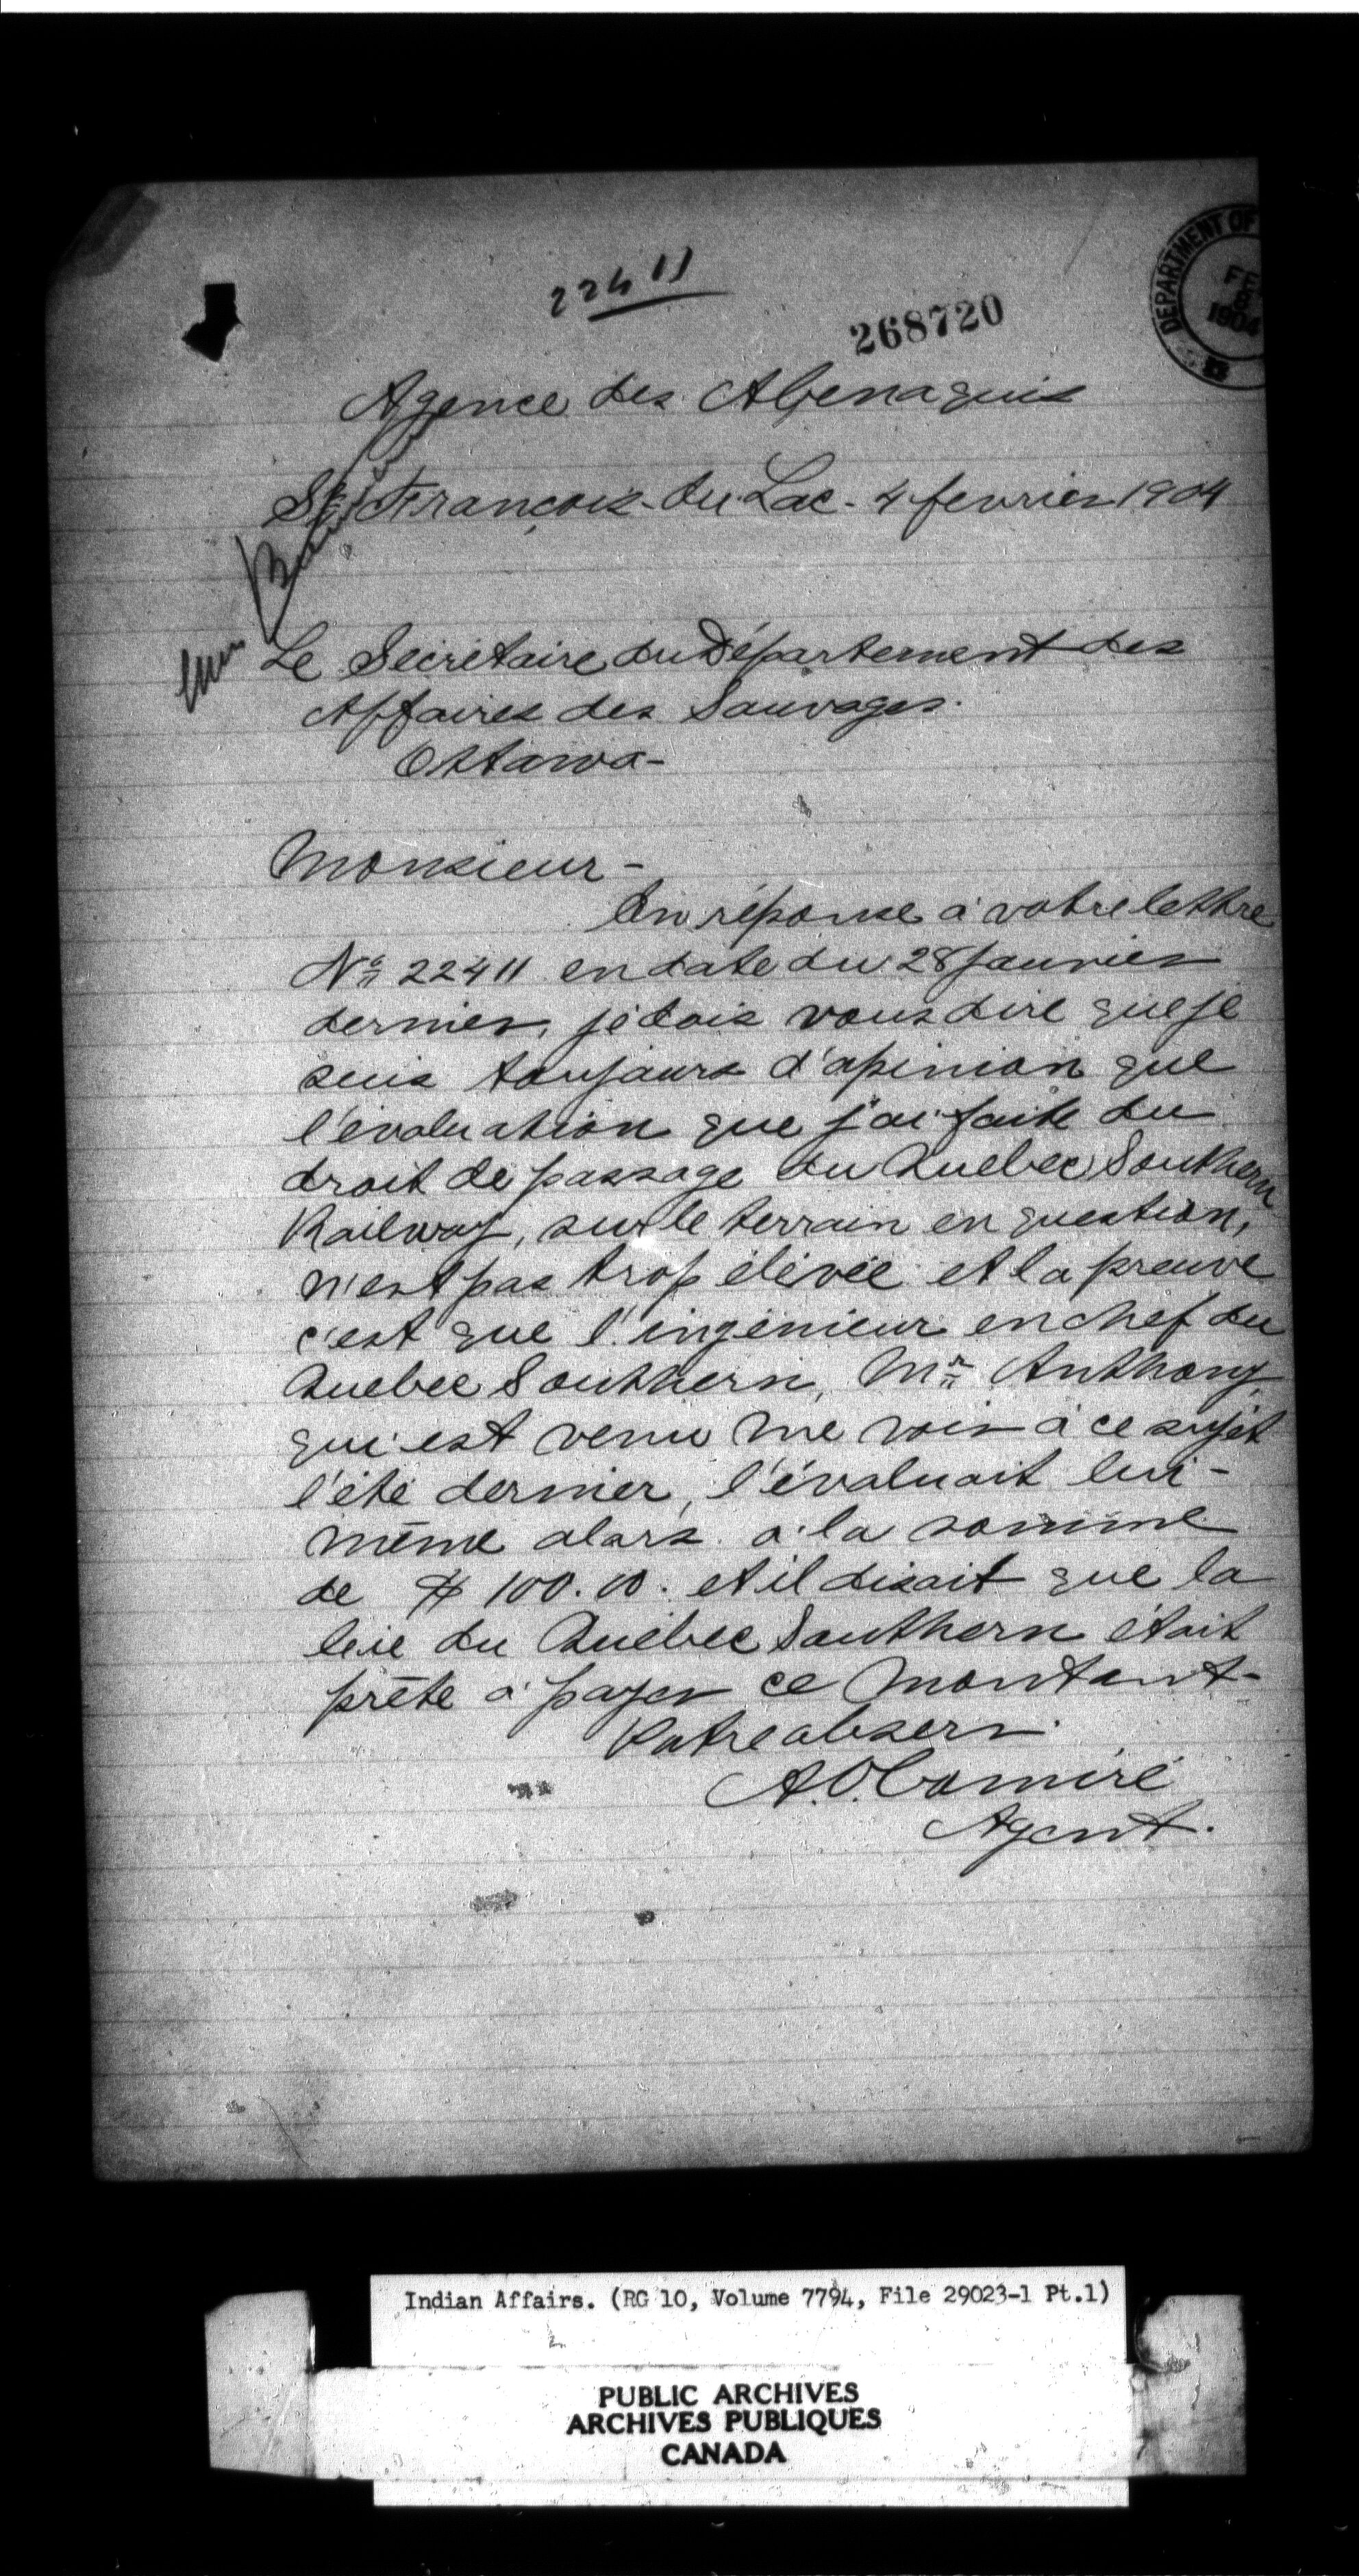 22411
268720
DEPARTMENT OF
FE
8
1904
Agence des Abenaquis
St François-du-Lac - 4 fevrier 1904
Le Secrétaire du Département des
Affaires des Sauvages.
Ottawa-
Monsieur-
En réponse à votre lettre
No 22411 en date du 28 janvier
dernier, je dois vous dire que je
suis toujours d'opinion que
l'évaluation que j'ai faite du
droit de passage du Quebec Southern
Railway, sur le terrain en question,
n'est pas trop élevée et la preuve
c'est que l'ingénieur en chef du
Quebec Southern, Mr Anthony
qui est venu me voir à ce sujet
l'été dernier, l'évaluait lui-
même alors à la somme
de $ 100.00. et il disait que la
Cie du Quebec Southern était
prête à payer ce montant-
Votre obser.
A.O. Comiré
Agent.
Indian Affairs. (RG 10, Volume 7794, File 29023-1 Pt.1)
PUBLIC ARCHIVES
ARCHIVES PUBLIQUES
CANADA